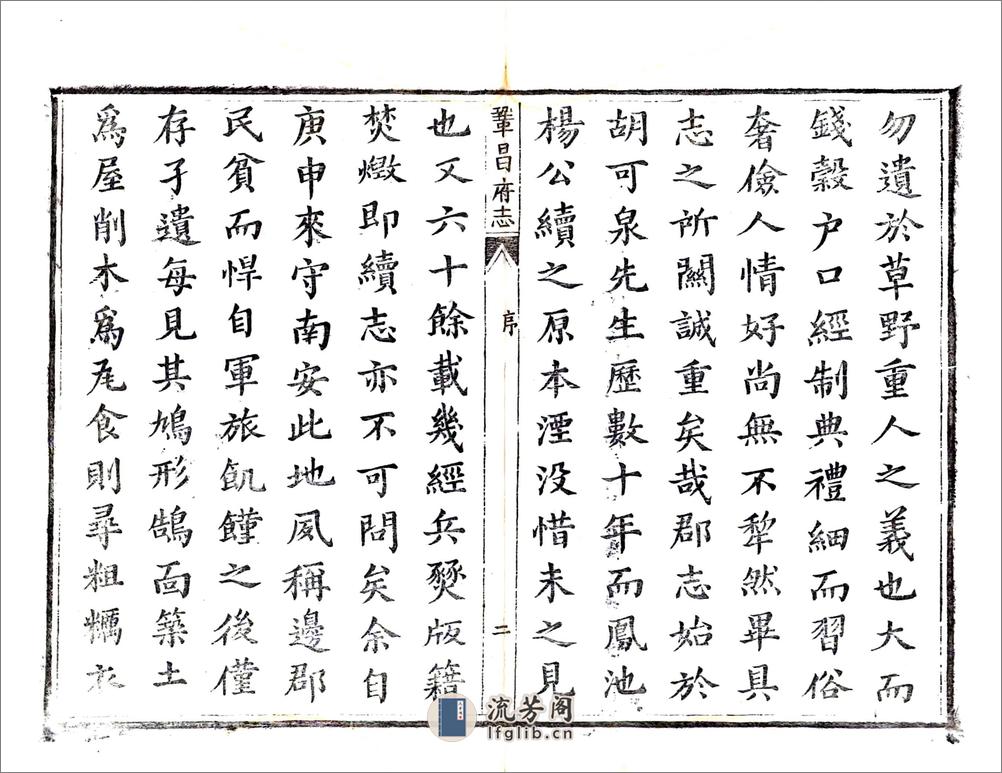 勿遺於草野重人之義也大而
錢穀户口經制典禮細而習俗
奢儉人情好尚無不犂然畢具
志之所關誠重矣哉郡志始於
胡可泉先生歷數十年而鳳池
楊公續之原本湮没惜未之見
鞏昌府志
序
二
也又六十餘載幾經兵燹版籍
焚燬即續志亦不可問矣余自
庚申來守南安此地夙稱邊郡
民貧而悍自軍旅飢饉之後僅
存孑遺每見其鳩形鵠面築土
爲屋削木爲瓦食則尋粗糲衣
流芳阁
lfglib.cn